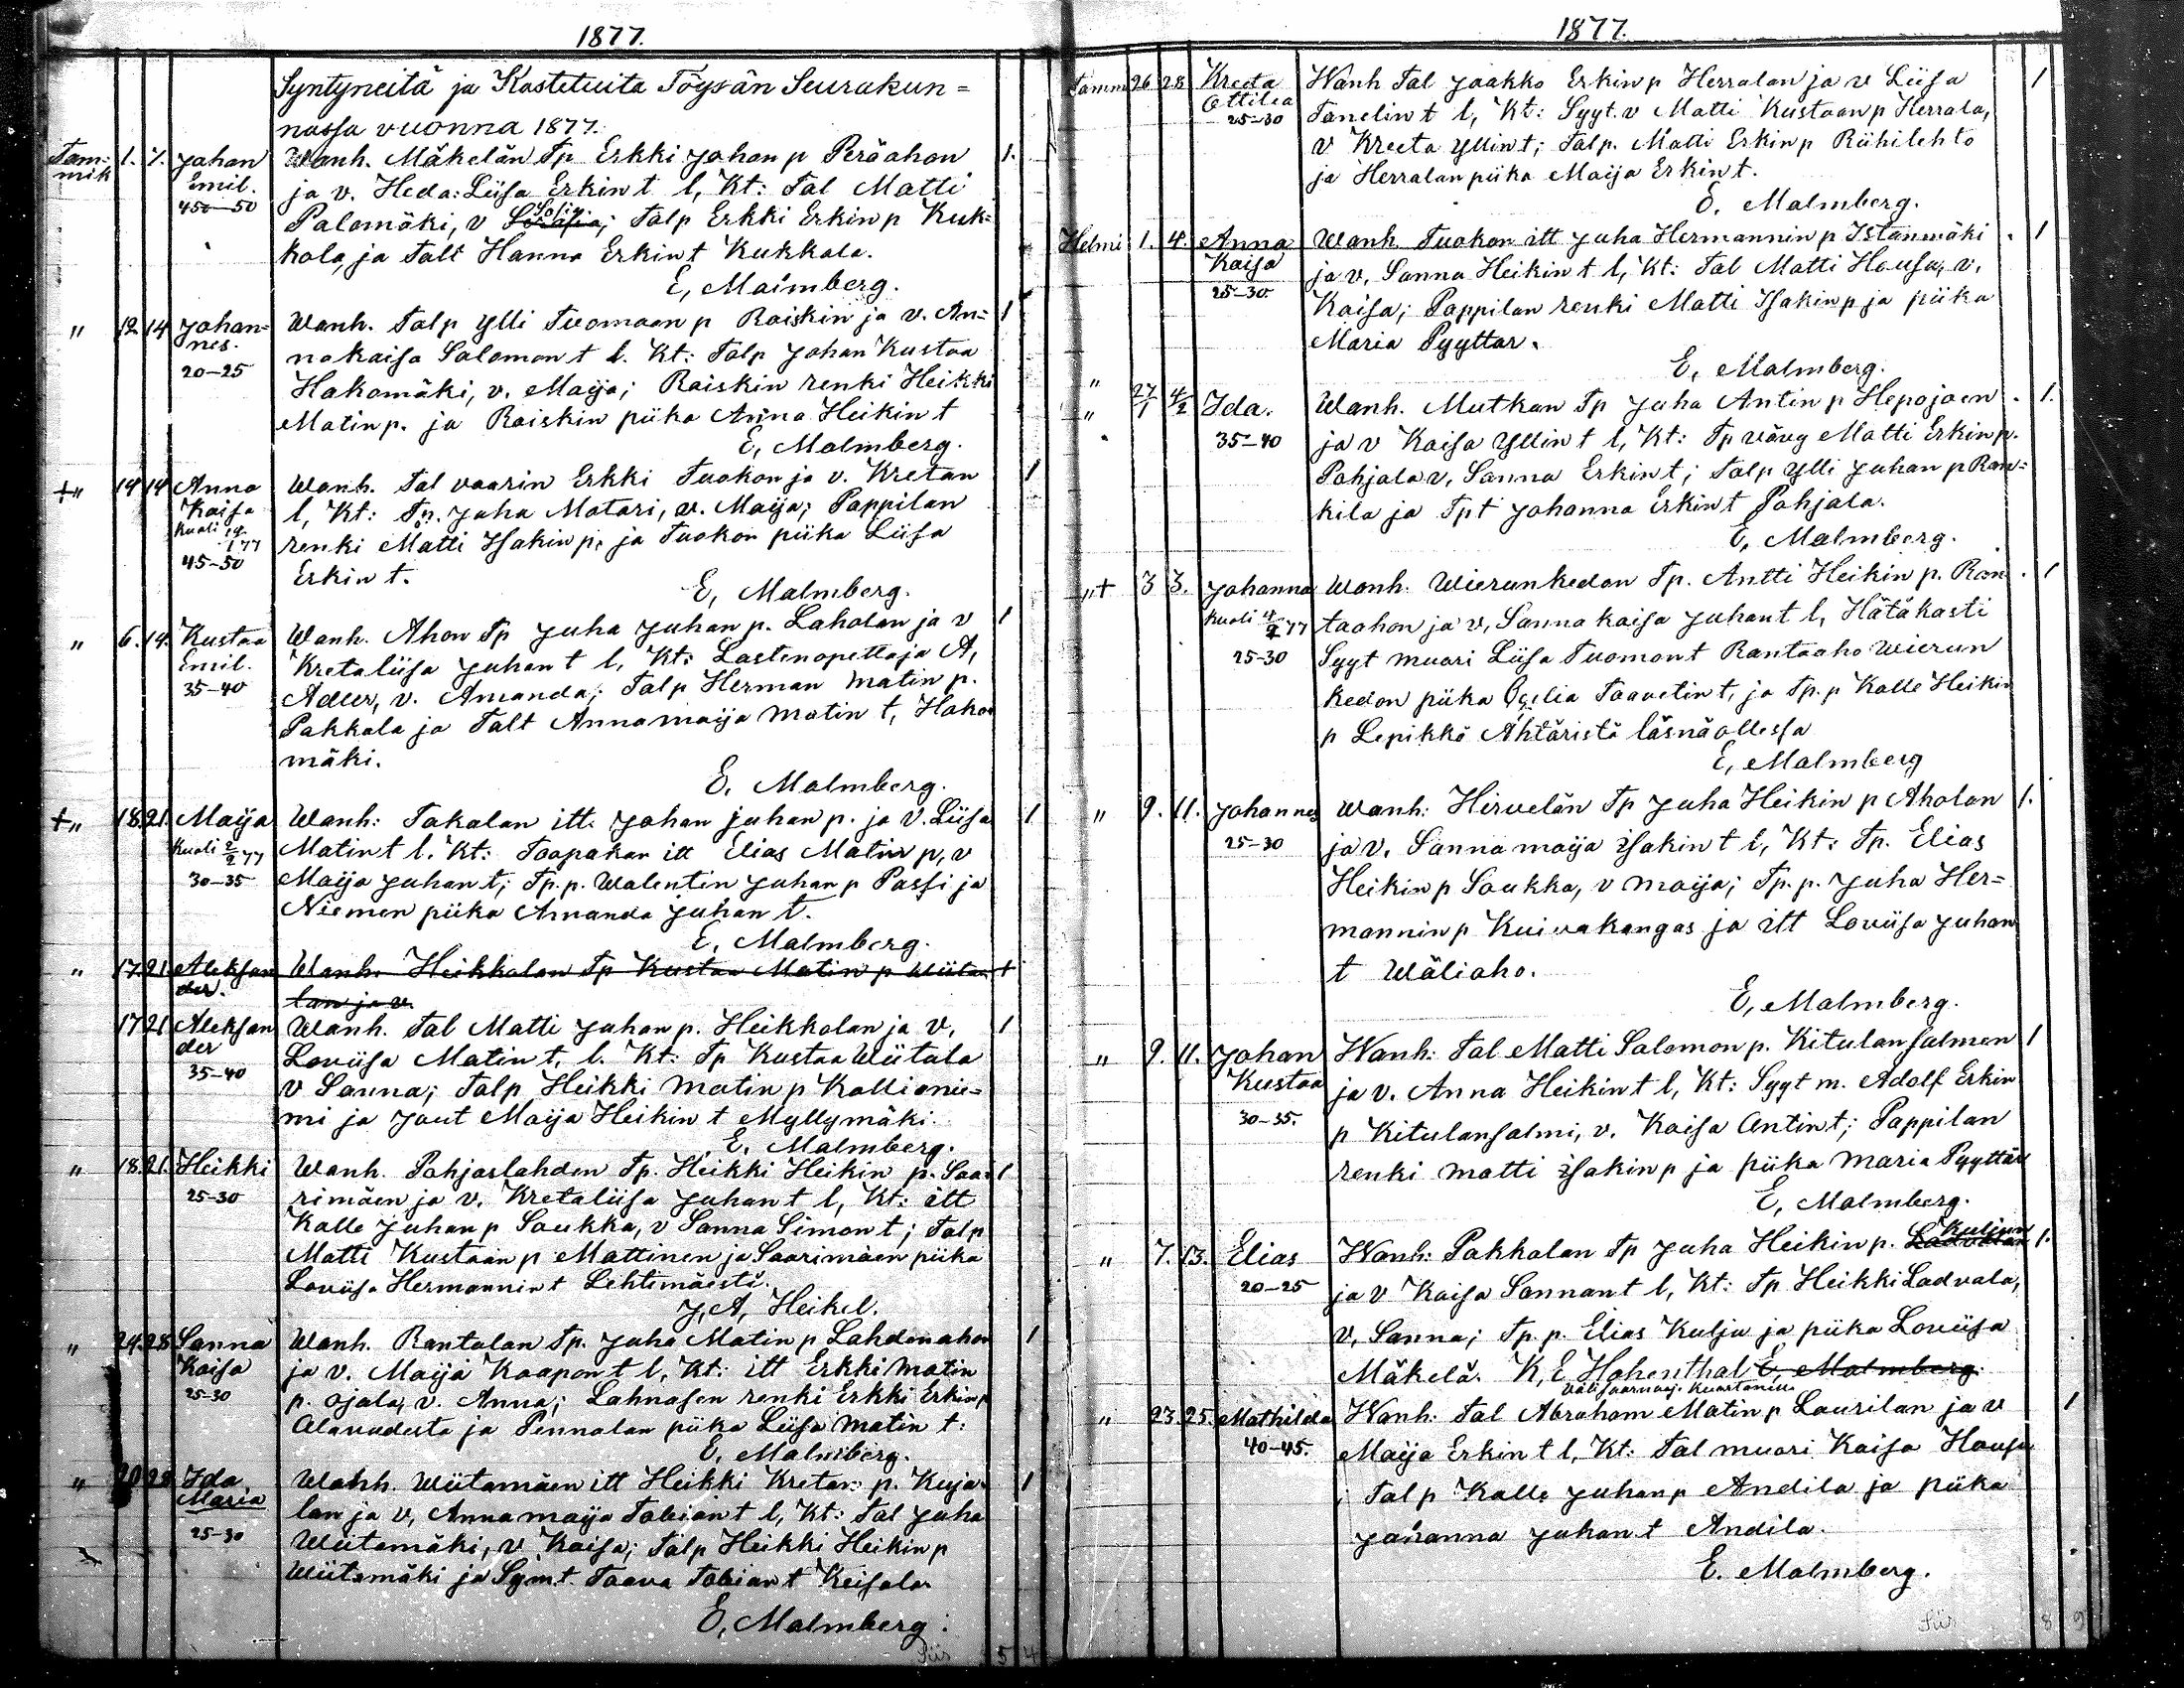 1877.
Syntyneitä ja Kastetuita Töysän Seurakun=
nassa vuonna 1877.
Tam-
mik 1. 7. Johan Wanh. Mäkelän Tp Erkki Johan p Peräahon 1.
Emil. ja v. Heda: Liisa Erkin t l, Kt: Tal Matti
45–50 Palomäki, v Sofia; Talp Erkki Erkin p Kuk=
kola, ja Talt Hanna Erkin t Kukkola.
E, Malmberg.
" 12 14 Johan= Wanh. Talp Ylli Tuomaan p Raiskin ja v. An= 1
nes. nakaisa Salomon t l. Kt: Talp Johan Kustaa
20–25 Hakomäki, v. Maija; Raiskin renki Heikki
Matin p. ja Raiskin piika Anna Heikin t
E, Malmberg.
+" 14 14 Anna Wanh. Tal vaarin Erkki Tuokon ja v. Kretan 1
Kaisa l, Kt: Tp. Juha Matari, v. Maija; Pappilan
Kuoli 19/1 77 renki Matti Isakin p, ja Tuokon piika Liisa
45–50 Erkin t.
E, Malmberg.
" 6. 14. Kustaa Wanh. Ahon Tp Juha Juhan p. Laholan ja v 1
Emil. Kretaliisa Juhan t l, Kt: Lastenopettaja A,
35–40 Adler, v. Amanda; Talp Herman Matin p.
Pakkala ja Talt Annamaija Matin t, Hako
mäki.
E. Malmberg.
+" 18. 21. Maija Wanh: Takalan itt. Johan Juhan p. ja v. Liisa 1
Kuoli 2/2 77 Matin t l. Kt: Taapakan itt Elias Matin p, v
30–35 Maija Juhan t; Tp. p. Walentin Juhan p Passi ja
Niemen piika Amanda Juhan t.
E, Malmberg.
" 17. 21. Aleksan Wanh. Heikkolan Tp Kustaa Matin p Wiita +
der. lan ja v.
17 21 Aleksan Wanh. Tal Matti Juhan p. Heikkolan ja v, 1
der Loviisa Matin t, l. Kt: Tp Kustaa Wiitala
35–40 v Sanna; Talp Heikki Matin p Kallionie=
mi ja Jaut Maija Heikin t Myllymäki.
E. Malmberg.
" 18. 21. Heikki Wanh. Pohjaslahden Tp. Heikki Heikin p. Saa= 1
25–30 rimäen ja v. Kretaliisa Juhan t l, Kt: itt
Kalle Juhan p Saukka, v Sanna Simon t; Talp
Matti Kustaan p Mattinen ja Saarimäen piika
Loviisa Hermannin t Lehtimäestä.
J, A, Heikel.
" 24. 28 Sanna Wanh. Rantalan Tp. Juha Matin p Lahdenahon 1
Kaisa ja v. Maija Kaapon t l, Kt: itt Erkki Matin
25–30 p. Ojala, v. Anna; Lahnasen renki Erkki Erkin p
Alavudesta ja Pennalan piika Liisa Matin t:
E, Malmberg.
" 20 28 Ida Wanh. Wiitamäen itt Heikki Kretan p. Kuja= 1
Maria lan ja v, Annamaija Tobian t l, Kt: Tal Juha
25–30 Wiitamäki, v Kaisa; Talp Heikki Heikin p
Wiitamäki ja Symt. Taava Tobian t Keisala
E, Malmberg.
Siir 5 4
1877.
Tamm 26 28 Kreeta Wanh Tal Jaakko Erkin p Herralan ja v Liisa 1
Ottilia Tanelin t l, Kt: Syyt. v Matti Kustaan p Herrala,
25–30 v Kreeta Yllin t; Talp. Matti Erkin p Riihilehto
ja Herralan piika Maija Erkin t.
E. Malmberg.
Helmi 1. 4. Anna Wanh Tuokon itt Juha Hermannin p Istanmäki 1
Kaisa ja v, Sanna Heikin t l, Kt: Tal Matti Housu, v,
25–30 Kaisa; Pappilan renki Matti Isakin p ja piika
Maria Pyyttar.
E, Malmberg.
"
" 27/1 4/2 Ida. Wanh. Mutkan Tp Juha Antin p Hepojoen 1.
35–40 ja v Kaisa Yllin t l, Kt: Tp vävy Matti Erkin p.
Pohjola v, Sanna Erkin t; Talp Ylli Juhan p Ran=
kila ja Tpt Johanna Erkin t Pohjala.
E, Malmberg.
"+ 3 3. Johanna Wanh. Wierunkedon Tp. Antti Heikin p. Ran 1
Kuoli 4/2 77 taahon ja v, Sanna kaisa Juhan t l, Hätäkasti
25–30 Syyt muori Liisa Tuomon t Rantaaho Wierun
kedon piika Ceslia Taavetin t, ja Tp. p Kalle Heikin
p Lepikkö Ähtäristä läsnäollessa
E, Malmberg
" 9. 11. Johannes Wanh: Hirvelän Tp Juha Heikin p Aholan 1.
25–30 ja v. Sanna maija Isakin t l, Kt: Tp. Elias
Heikin p Saukka, v Maija; Tp. p. Juha Her=
mannin p Kuivakangas ja itt Loviisa Juhan
t Wäliaho.
E, Malmberg.
" 9. 11. Johan Wanh: Tal Matti Salomon p. Kitulansalmen 1
Kustaa ja v. Anna Heikin t l, Kt: Syyt m. Adolf Erkin
30–35. p Kitulansalmi, v. Kaisa Antin t; Pappilan
renki Matti Isakin p ja piika Maria Pyyttäre
E, Malmberg.
" 7. 13. Elias Wanh: Pakkalan Tp Juha Heikin p. Ladvalan Kuljun 1.
20–25 ja v Kaisa Sannan t l, Kt: Tp Heikki Ladvala,
v, Sanna; Tp. p. Elias Kulju ja piika Loviisa
Mäkelä. K, E Hohenthal E, Malmberg
välisaarnaaja
" 23. 25. Mathilda Wanh: Tal Abraham Matin p Laurilan ja v 1
40–45. Maija Erkin t l, Kt: Tal muori Kaisa Housu
; Talp Kalle Juhan p Andila ja piika
Johanna Juhan t Andila.
E. Malmberg.
Siir 8 9